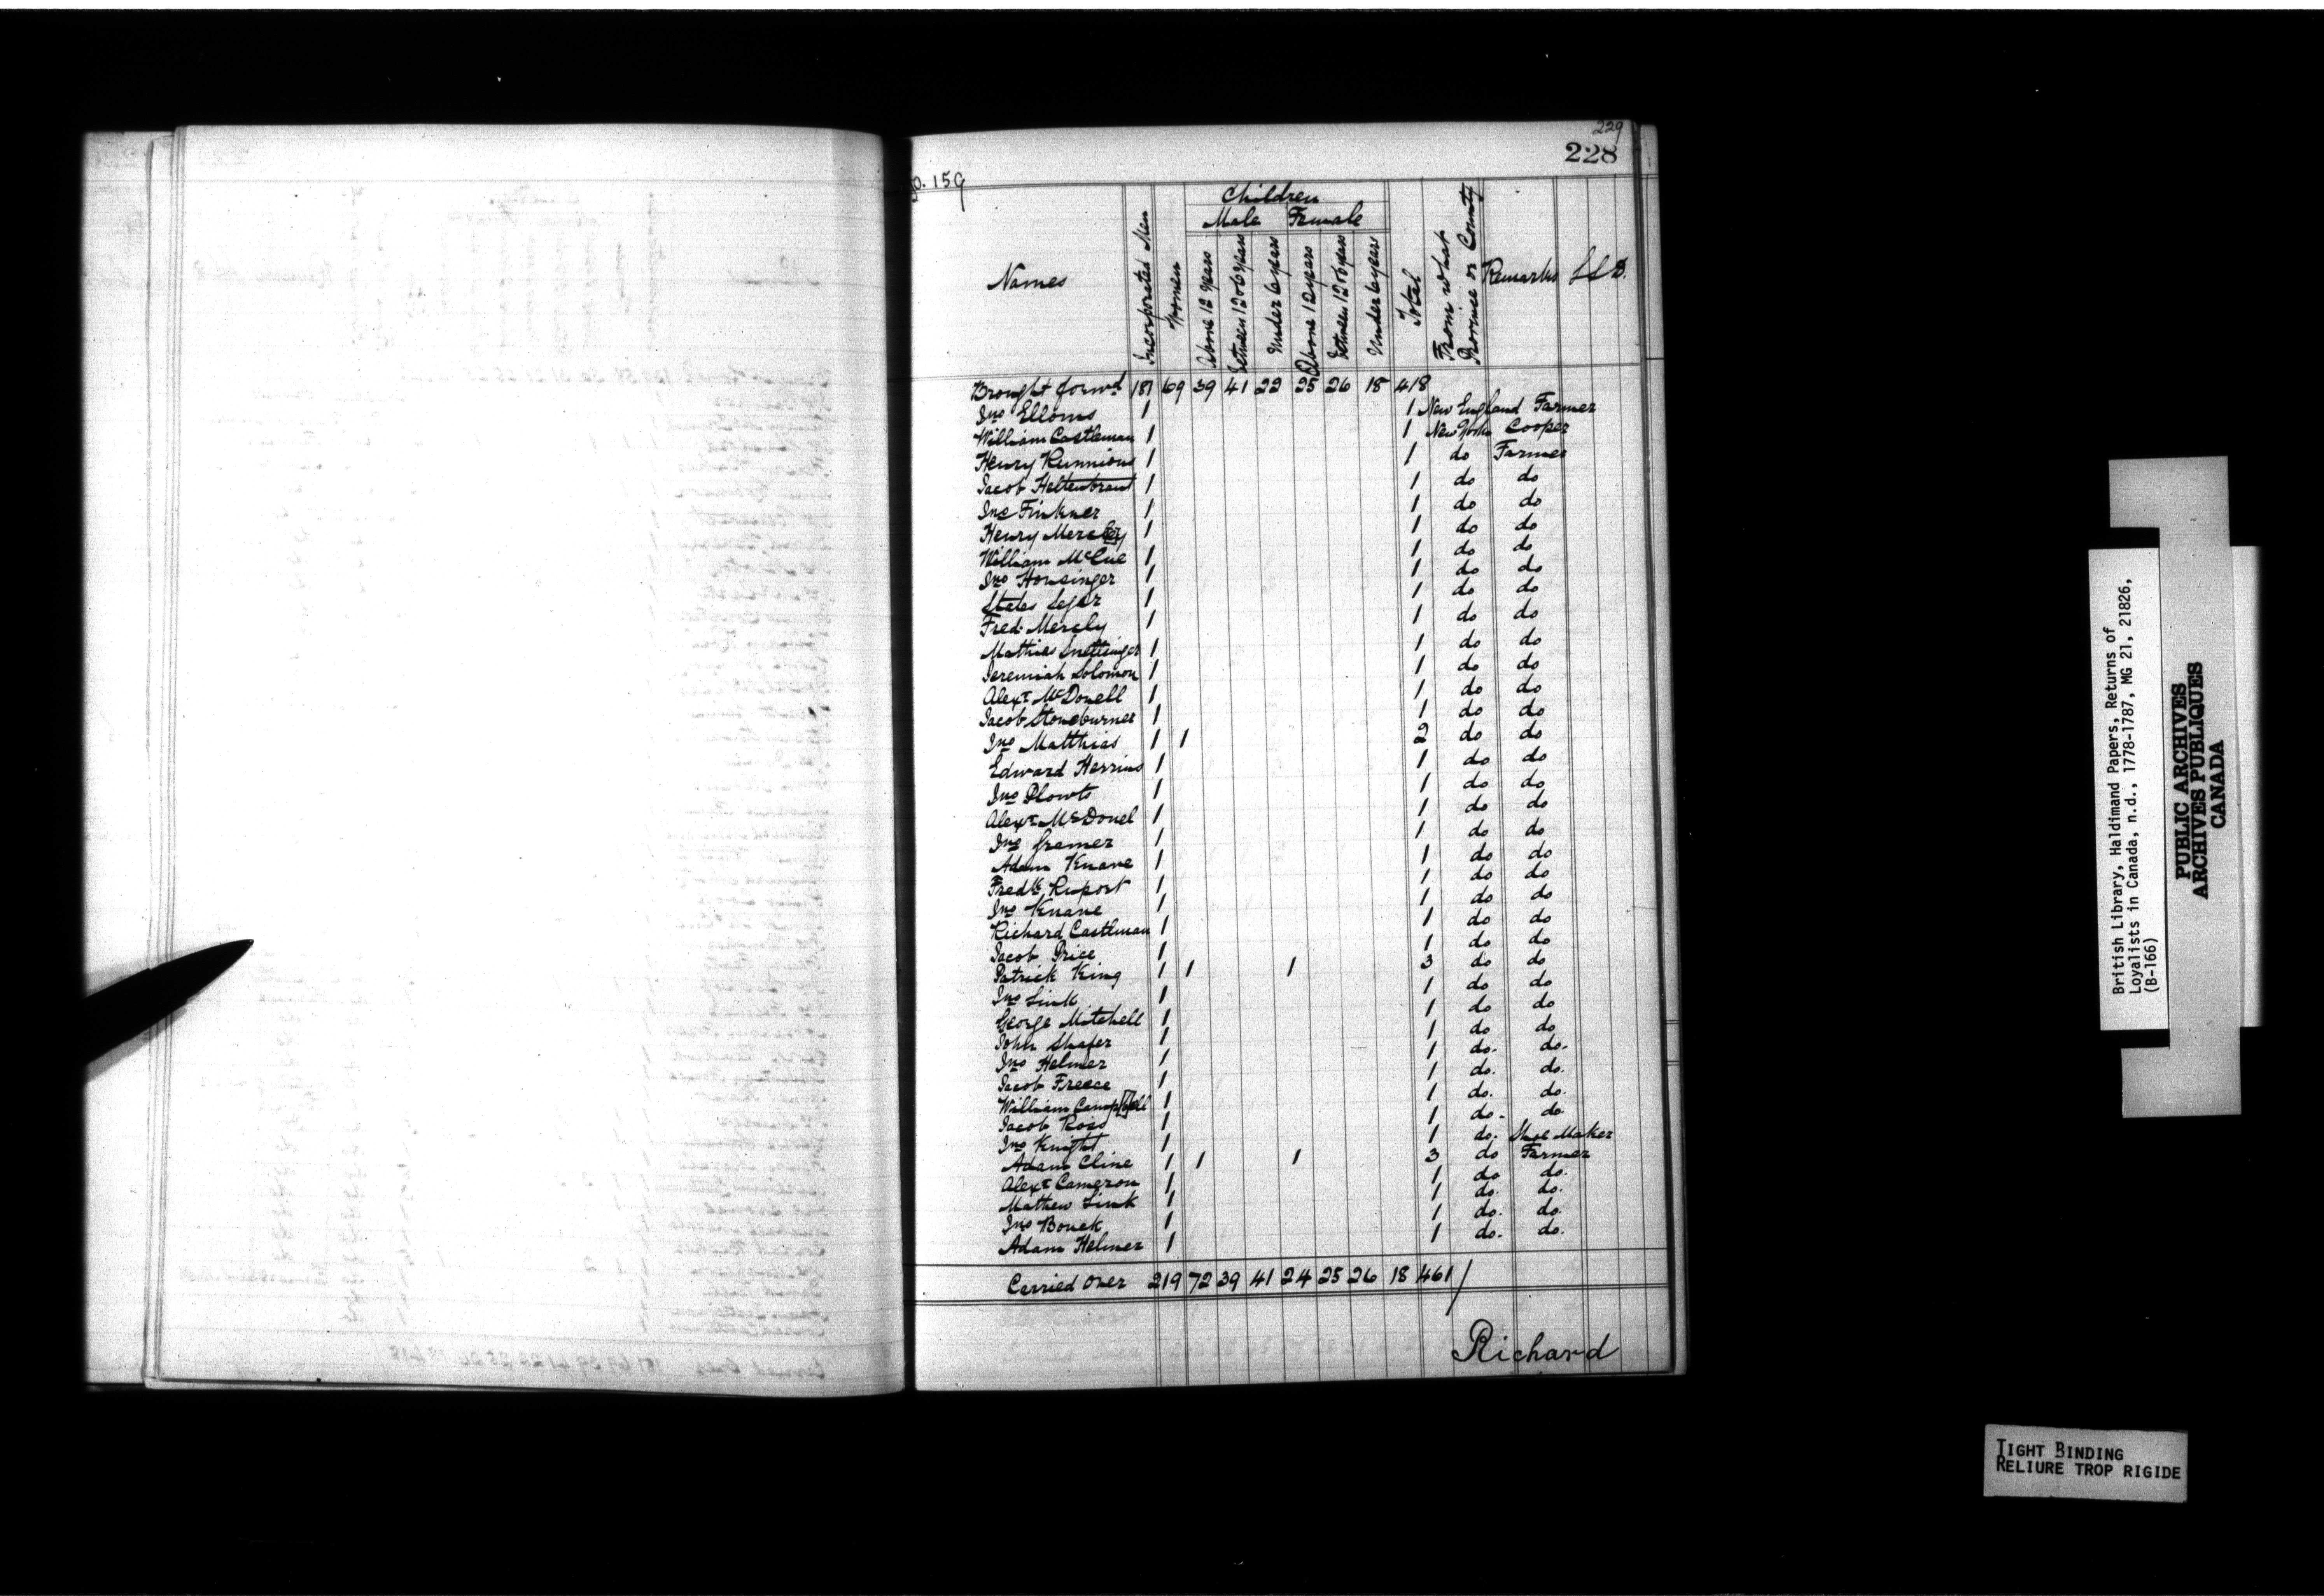 229
228
p. 159
Names
Incorporated Men
Women
Children
Male Female
Above 12 years
Between 12 & 6 years
Under 6 years
Above 12 years
Between 12 & 6 years
Under 6 years
Total
From what Province or County
Remarks
£ S D.
Brought forwd 181 69 39 41 22 25 26 18 418
Jno Elloms 1 1 New England Farmer
William Castleman 1 1 New York Cooper
Henry Runnions 1 1 do Farmer
Jacob Heltenbrant 1 1 do do
Jno Finkner 1 1 do do
Henry Mercley 1 1 do do
William McCue 1 1 do do
Jno Housinger 1 1 do do
States Seger 1 1 do do
Fred. Mercly 1 1 do do
Mathias Snettsinger 1 1 do do
Jeremiah Solomon 1 1 do do
Alexr McDonell 1 1 do do
Jacob Stoneburner 1 1 do do
Jno Matthias 1 1 2 do do
Edward Herrins 1 1 do do
Jno Plowts 1 1 do do
Alexr McDonel 1 1 do do
Jno Gramer 1 1 do do
Adam Knave 1 1 do do
Fredk Ruport 1 1 do do
Jno Knave 1 1 do do
Richard Castlman 1 1 do do
Jacob Price 1 1 do do
Patrick King 1 1 1 3 do do
Jno Link 1 1 do do
George Mitchell 1 1 do do
John Shafer 1 1 do do
Jno Helmer 1 1 do. do.
Jacob Freece 1 1 do. do.
William Camp[b]ell 1 1 do. do.
Jacob Ross 1 1 do. do
Jno Knight 1 1 do. Shoe Maker
Adam Cline 1 1 1 3 do Farmer
Alexr Cameron 1 1 do do.
Mathew Link 1 1 do. do.
Jno Bouck 1 1 do. do.
Adam Helmer 1 1 do. do.
Carried over 219 72 39 41 24 25 26 18 461
Richard
British Library, Haldimand Papers, Returns of
Loyalists in Canada, n.d., 1778-1787, MG 21, 21826,
(B-166)
PUBLIC ARCHIVES
ARCHIVES PUBLIQUES
CANADA
TIGHT BINDING
RELIURE TROP RIGIDE